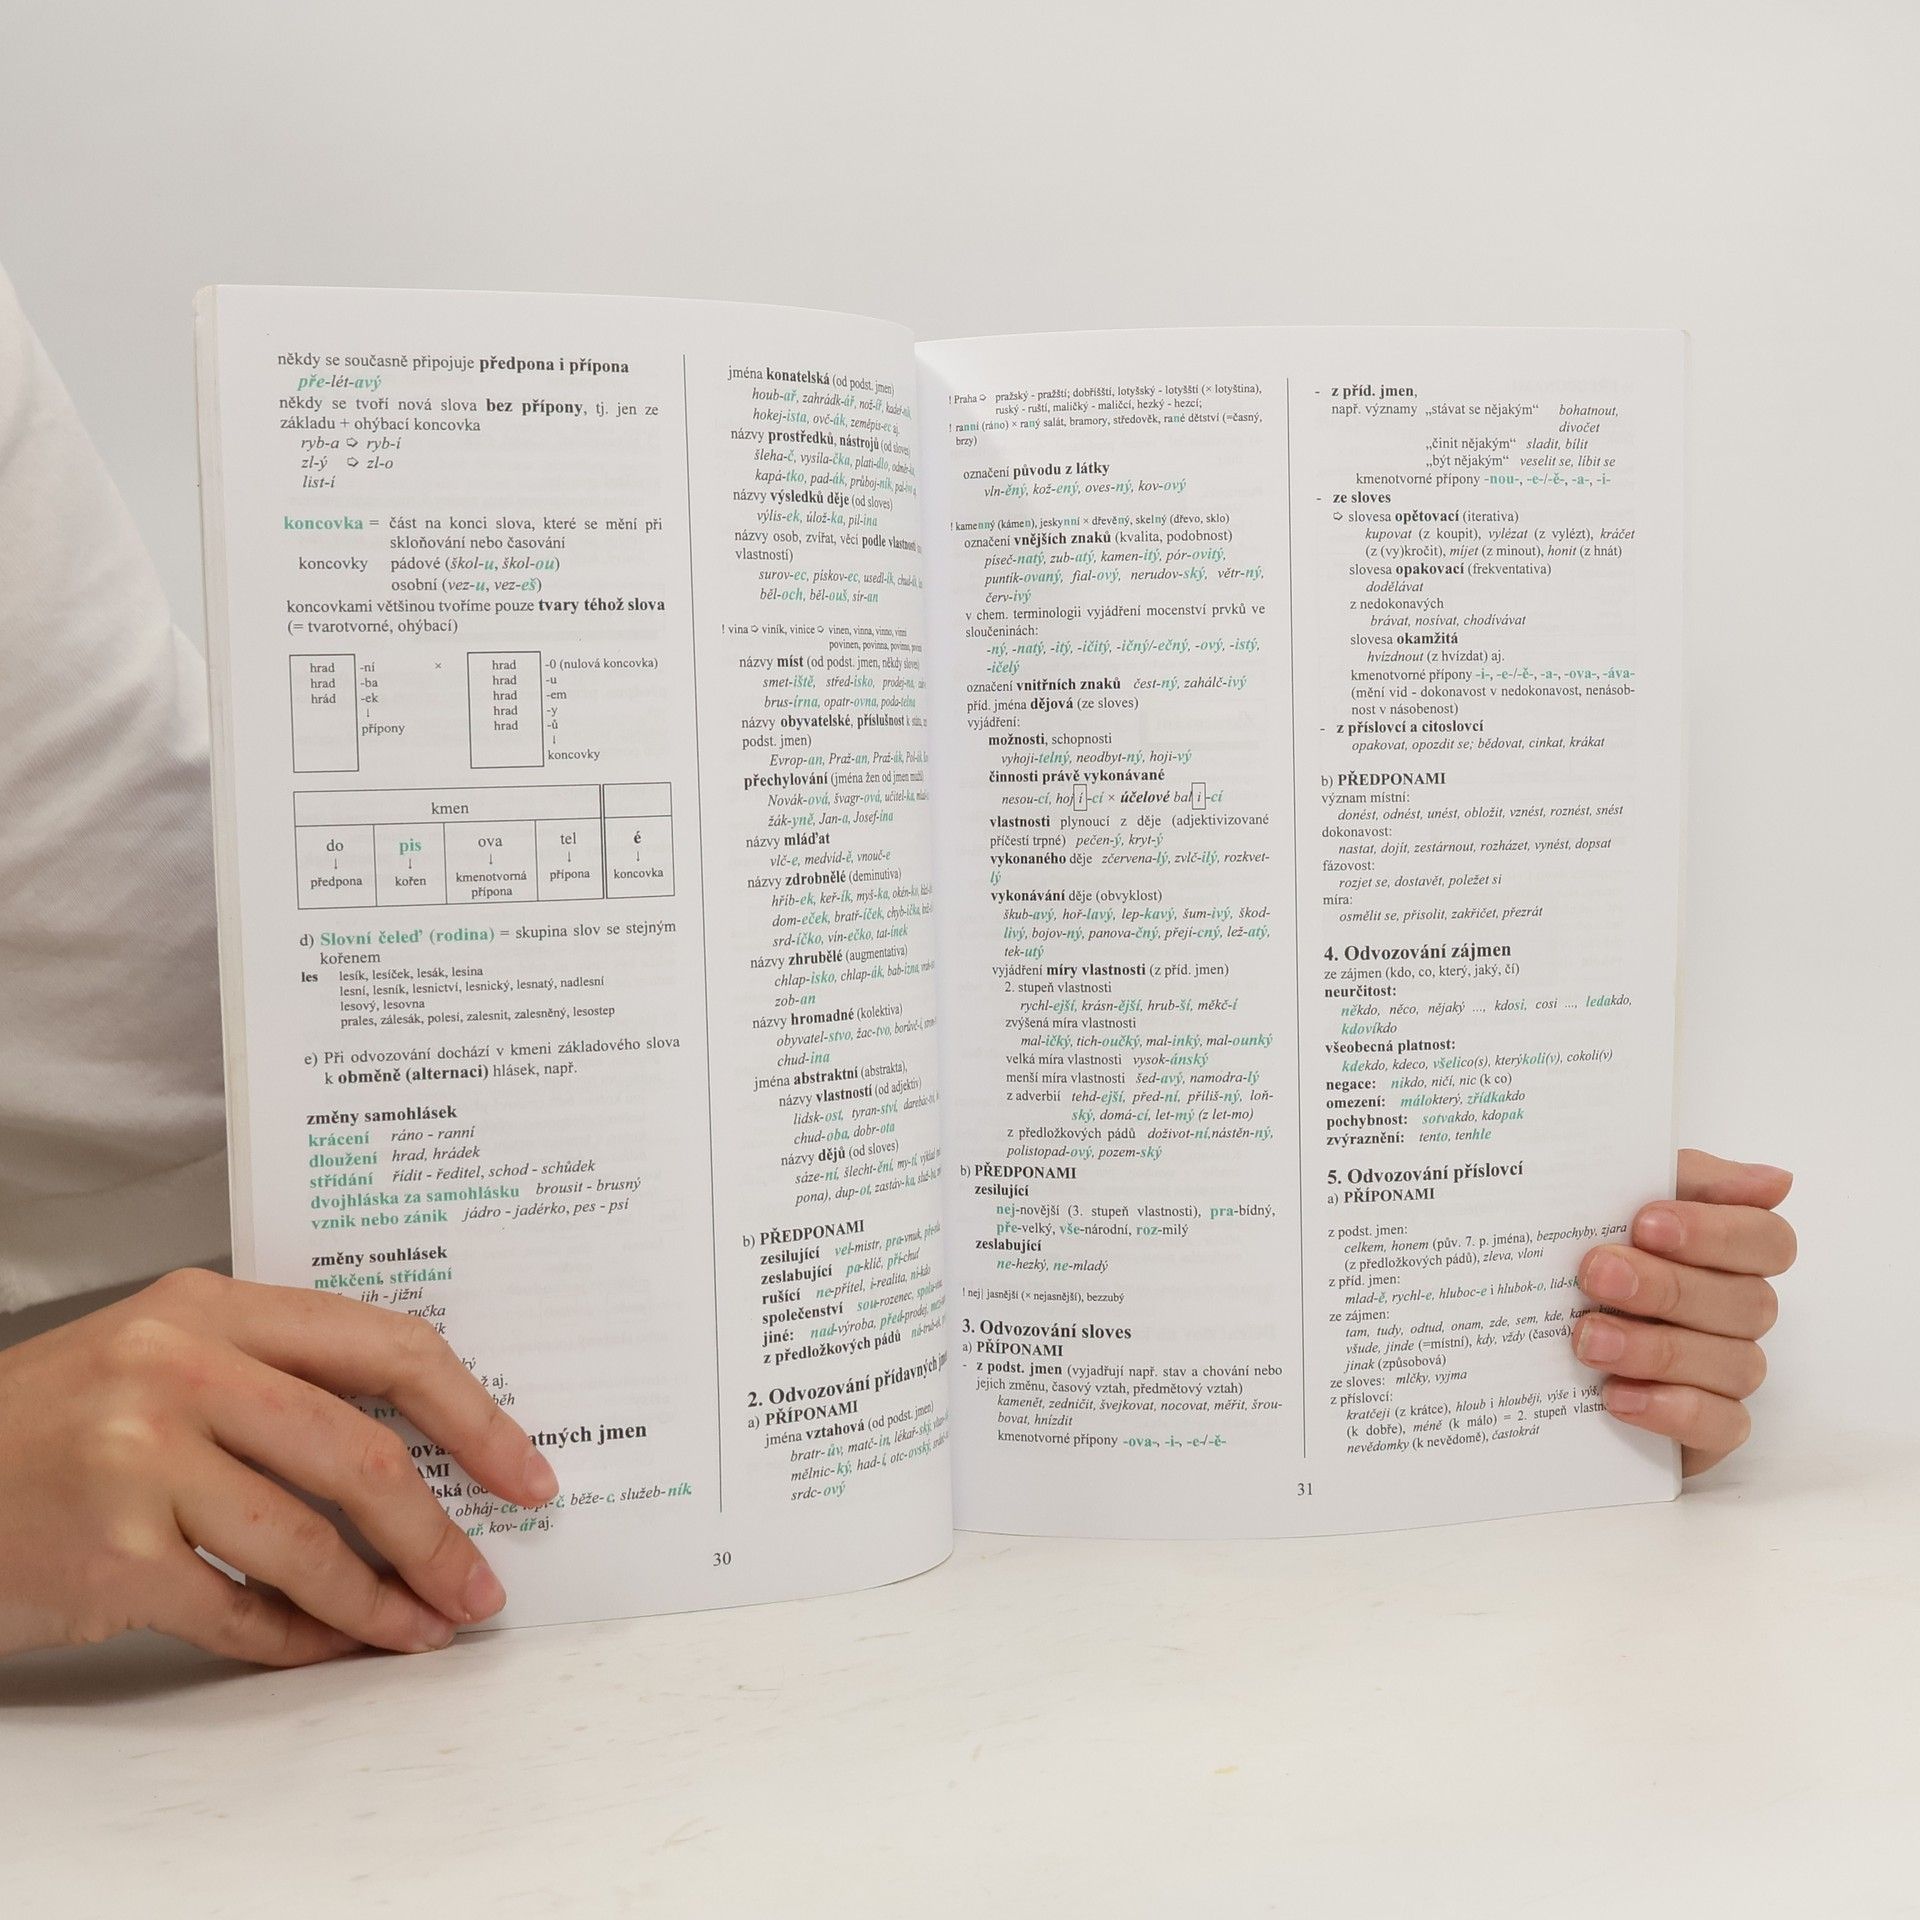 někdy se současně připojuje předpona i přípona
pře-lét-avý
někdy se tvoří nová slova bez přípony, tj. jen ze
základu + ohýbací koncovka
ryb-a ➪ ryb-í
zl-ý ➪ zl-o
list-í
koncovka = část na konci slova, které se mění při
skloňování nebo časování
koncovky pádové (škol-u, škol-ou)
osobní (vez-u, vez-eš)
koncovkami většinou tvoříme pouze tvary téhož slova
(= tvarotvorné, ohýbací)
hrad -ní × hrad -0 (nulová koncovka)
hrad -ba hrad -u
hrád -ek hrad -em
↓ hrad -y
přípony hrad -ů
↓
koncovky
kmen
do pis ova tel é
↓ ↓ ↓ ↓ ↓
předpona kořen kmenotvorná přípona koncovka
přípona
d) Slovní čeleď (rodina) = skupina slov se stejným
kořenem
les lesík, lesíček, lesák, lesina
lesní, lesník, lesnictví, lesnický, lesnatý, nadlesní
lesový, lesovna
prales, zálesák, polesí, zalesnit, zalesněný, lesostep
e) Při odvozování dochází v kmeni základového slova
k obměně (alternaci) hlásek, např.
změny samohlásek
krácení ráno - ranní
dloužení hrad, hrádek
střídání řídit - ředitel, schod - schůdek
dvojhláska za samohlásku brousit - brusný
vznik nebo zánik jádro - jadérko, pes - psí
změny souhlásek
měkčení, střídání
jih - jižní
ručka
aj.
atných jmen
obháj-ce, běže-c, služeb-ník,
ař, kov-ář aj.
30
jména konatelská (od podst. jmen)
houb-ař, zahrádk-ář, nož-íř,
hokej-ista, ovč-ák, zeměpis-ec aj.
názvy prostředků, nástrojů (od sloves)
šleha-č, vysíla-čka, plati-dlo,
kapá-tko, pad-ák, průboj-ník,
názvy výsledků děje (od sloves)
výlis-ek, úlož-ka, pil-ina
názvy osob, zvířat, věcí podle vlastnosti
vlastností)
surov-ec, pískov-ec, usedl-ík,
běl-och, běl-ouš, sír-an
! vina ➪ viník, vinice ➪ vinen, vinna, vinno, vinni
povinen, povinna, povinno,
názvy míst (od podst. jmen, někdy sloves)
smet-iště, střed-isko, prodej-na,
brus-írna, opatr-ovna, poda-telna
názvy obyvatelské, příslušnost k
podst. jmen)
Evrop-an, Praž-an, Praž-ák,
přechylování (jména žen od jmen mužů)
Novák-ová, švagr-ová, učitel-ka,
žák-yně, Jan-a, Josef-ína
názvy mláďat
vlč-e, medvíd-ě, vnouč-e
názvy zdrobnělé (deminutiva)
hříb-ek, keř-ík, myš-ka, okén-ko,
dom-eček, bratř-íček, chyb-ička,
srd-íčko, vín-ečko, tat-ínek
názvy zhrubělé (augmentativa)
chlap-isko, chlap-ák, bab-izna,
zob-an
názvy hromadné (kolektiva)
obyvatel-stvo, žac-tvo,
chud-ina
jména abstraktní (abstrakta),
názvy vlastností (od adjektiv)
lidsk-ost, tyran-ství,
chud-oba, dobr-ota
názvy dějů (od sloves)
sáze-ní, šlecht-ění, my-tí,
pona), dup-ot, zastáv-ka,
b) PŘEDPONAMI
zesilující vel-mistr, pra-vnuk,
zeslabující pa-klíč, pří-chuť
rušící ne-přítel, i-realita, ni-kdo
společenství sou-rozenec,
jiné: nad-výroba, před-prodej,
z předložkových pádů
2. Odvozování přídavných
a) PŘÍPONAMI
jména vztahová (od podst. jmen)
bratr-ův, matč-in, lékař-ský,
mělnic-ký, had-í, otc-ovský,
srdc-ový
! Praha ➪ pražský - pražští; dobříšští, lotyšský - lotyšští (× lotyština),
ruský - ruští, maličký - maličcí, hezký - hezcí;
! ranní (ráno) × raný salát, brambory, středověk, rané dětství (=časný,
brzy)
označení původu z látky
vln-ěný, kož-ený, oves-ný, kov-ový
! kamenný (kámen), jeskynní × dřevěný, skelný (dřevo, sklo)
označení vnějších znaků (kvalita, podobnost)
píseč-natý, zub-atý, kamen-itý, pór-ovitý,
puntík-ovaný, fial-ový, nerudov-ský, větr-ný,
červ-ivý
v chem. terminologii vyjádření mocenství prvků ve
sloučeninách:
-ný, -natý, -itý, -ičitý, -ičný/-ečný, -ový, -istý,
-ičelý
označení vnitřních znaků čest-ný, zahálč-ivý
příd. jména dějová (ze sloves)
vyjádření:
možnosti, schopnosti
vyhoji-telný, neodbyt-ný, hoji-vý
činnosti právě vykonávané
nesou-cí, hoj í -cí × účelové bal i -cí
vlastnosti plynoucí z děje (adjektivizované
příčestí trpné) pečen-ý, kryt-ý
vykonaného děje zčervena-lý, zvlč-ilý, rozkvet-
lý
vykonávání děje (obvyklost)
škub-avý, hoř-lavý, lep-kavý, šum-ivý, škod-
livý, bojov-ný, panova-čný, přeji-cný, lež-atý,
tek-utý
vyjádření míry vlastnosti (z příd. jmen)
2. stupeň vlastnosti
rychl-ejší, krásn-ější, hrub-ší, měkč-í
zvýšená míra vlastnosti
mal-ičký, tich-oučký, mal-inký, mal-ounký
velká míra vlastnosti vysok-ánský
menší míra vlastnosti šed-avý, namodra-lý
z adverbií tehd-ejší, před-ní, příliš-ný, loň-
ský, domá-cí, let-mý (z let-mo)
z předložkových pádů doživot-ní,nástěn-ný,
polistopad-ový, pozem-ský
b) PŘEDPONAMI
zesilující
nej-novější (3. stupeň vlastnosti), pra-bídný,
pře-velký, vše-národní, roz-milý
zeslabující
ne-hezký, ne-mladý
! nej| jasnější (× nejasnější), bezzubý
3. Odvozování sloves
a) PŘÍPONAMI
- z podst. jmen (vyjadřují např. stav a chování nebo
jejich změnu, časový vztah, předmětový vztah)
kamenět, zedničit, švejkovat, nocovat, měřit, šrou-
bovat, hnízdit
kmenotvorné přípony -ova-, -i-, -e-/-ě-
31
- z příd. jmen,
např. významy „stávat se nějakým“ bohatnout,
divočet
„činit nějakým“ sladit, bílit
„být nějakým“ veselit se, líbit se
kmenotvorné přípony -nou-, -e-/-ě-, -a-, -i-
- ze sloves
➪ slovesa opětovací (iterativa)
kupovat (z koupit), vylézat (z vylézt), kráčet
(z (vy)kročit), míjet (z minout), honit (z hnát)
slovesa opakovací (frekventativa)
dodělávat
z nedokonavých
brávat, nosívat, chodívávat
slovesa okamžitá
hvízdnout (z hvízdat) aj.
kmenotvorné přípony -i-, -e-/-ě-, -a-, -ova-, -áva-
(mění vid - dokonavost v nedokonavost, nenásob-
nost v násobenost)
- z příslovcí a citoslovcí
opakovat, opozdit se; bědovat, cinkat, krákat
b) PŘEDPONAMI
význam místní:
donést, odnést, unést, obložit, vznést, roznést, snést
dokonavost:
nastat, dojít, zestárnout, rozházet, vynést, dopsat
fázovost:
rozjet se, dostavět, poležet si
míra:
osmělit se, přisolit, zakřičet, přezrát
4. Odvozování zájmen
ze zájmen (kdo, co, který, jaký, čí)
neurčitost:
někdo, něco, nějaký ..., kdosi, cosi ..., ledakdo,
kdovíkdo
všeobecná platnost:
kdekdo, kdeco, všelico(s), kterýkoli(v), cokoli(v)
negace: nikdo, ničí, nic (k co)
omezení: málokterý, zřídkakdo
pochybnost: sotvakdo, kdopak
zvýraznění: tento, tenhle
5. Odvozování příslovcí
a) PŘÍPONAMI
z podst. jmen:
celkem, honem (pův. 7. p. jména), bezpochyby, zjara
(z předložkových pádů), zleva, vloni
z příd. jmen:
mlad-ě, rychl-e, hluboc-e i hlubok-o,
ze zájmen:
tam, tudy, odtud, onam, zde, sem, kde,
všude, jinde (=místní), kdy, vždy (časová),
jinak (způsobová)
ze sloves: mlčky, vyjma
z příslovcí:
kratčeji (z krátce), hloub i hlouběji, výše i výš,
(k dobře), méně (k málo) = 2. stupeň
nevědomky (k nevědomě), častokrát